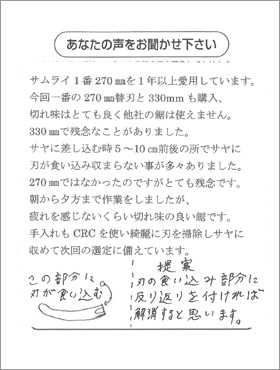 あなたの声をお聞かせ下さい
サムライ1番270㎜を1年以上愛用しています。
今回一番の270㎜替刃と330mmも購入、
切れ味はとても良く他社の鋸は使えません。
330㎜で残念なことがありました。
サヤに差し込む時5～10㎝前後の所でサヤに
刃が食い込み収まらない事が多々ありました。
270㎜ではなかったのですがとても残念です。
朝から夕方まで作業をしましたが、
疲れを感じないくらい切れ味の良い鋸です。
手入れもCRCを使い綺麗に刃を掃除しサヤに
収めて次回の選定に備えています。
この部分に
刃が食い込む
提案
刃の食い込み部分に
反り返りを付ければ
解消すると思います。